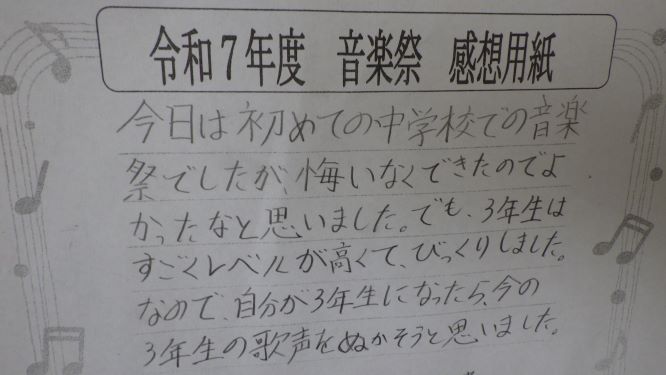 令和7年度 音楽祭 感想用紙
今日は初めての中学校での音楽
祭でしたが、悔いなくできたのでよ
かったなと思いました。でも、3年生は
すごくレベルが高くて、びっくりしました。
なので、自分が3年生になったら、今の
3年生の歌声をぬかそうと思いました。